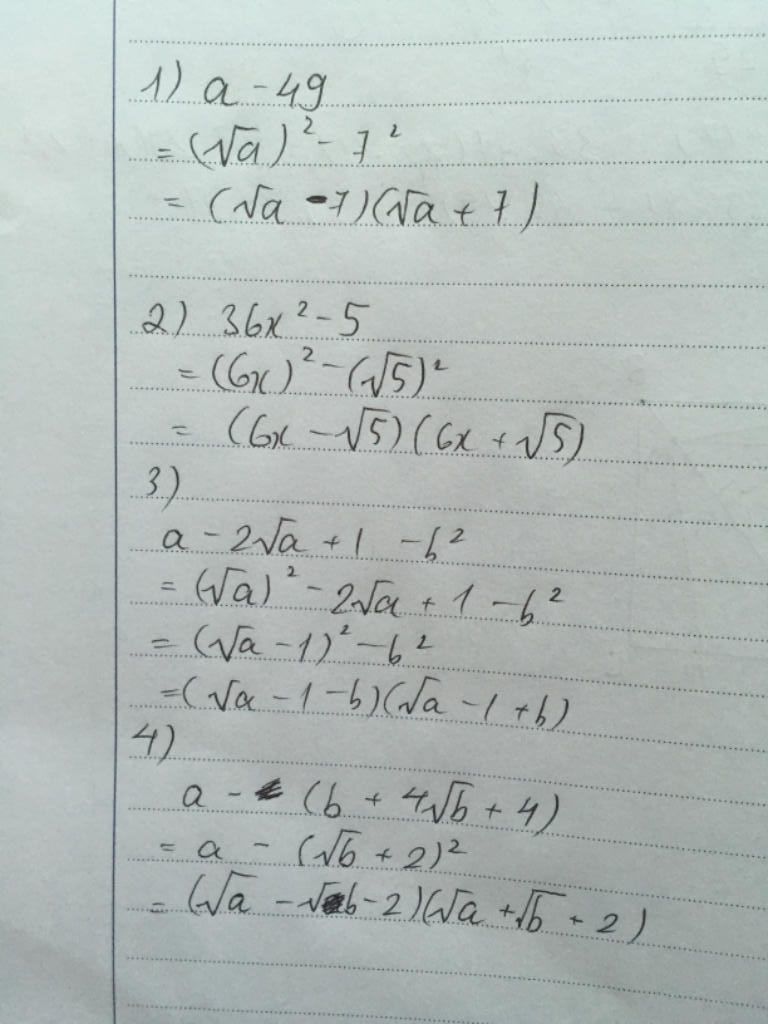 1) a - 49
= (√a)² - 7²
= (√a - 7)(√a + 7)
2) 36x² - 5
= (6x)² - (√5)²
= (6x - √5)(6x + √5)
3)
a - 2√a + 1 - b²
= (√a)² - 2√a + 1 - b²
= (√a - 1)² - b²
= (√a - 1 - b)(√a - 1 + b)
4)
a - (b + 4√b + 4)
= a - (√b + 2)²
= (√a - √b - 2)(√a + √b + 2)